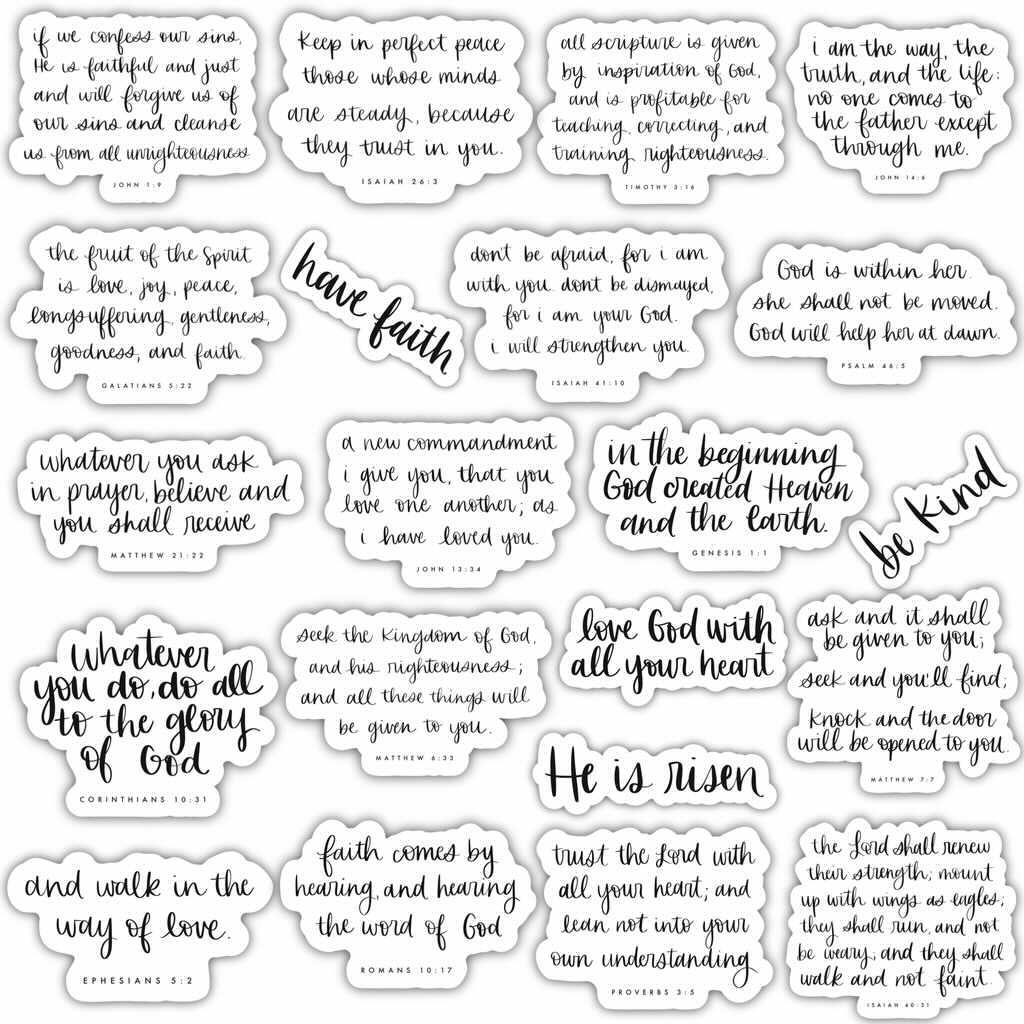 if we confess our sins,
He is faithful and just
and will forgive us of
our sins and cleanse
us from all unrighteousness
JOHN 1:9
Keep in perfect peace
those whose minds
are steady, because
they trust in you.
ISAIAH 26:3
all scripture is given
by inspiration of God,
and is profitable for
teaching, correcting, and
training righteousness.
TIMOTHY 3:16
i am the way, the
truth, and the life:
no one comes to
the father except
through me.
JOHN 14:6
the fruit of the Spirit
is love, joy, peace,
longsuffering, gentleness,
goodness, and faith.
GALATIANS 5:22
have faith
don't be afraid, for i am
with you. don't be dismayed,
for i am your God.
i will strengthen you.
ISAIAH 41:10
God is within her.
she shall not be moved.
God will help her at dawn.
PSALM 46:5
whatever you ask
in prayer, believe and
you shall receive
MATTHEW 21:22
a new commandment
i give you, that you
love one another; as
i have loved you.
JOHN 13:34
in the beginning
God created Heaven
and the Earth.
GENESIS 1:1
be kind
whatever
you do, do all
to the glory
of God
CORINTHIANS 10:31
seek the Kingdom of God,
and his righteousness;
and all these things will
be given to you.
MATTHEW 6:33
love God with
all your heart
He is risen
ask and it shall
be given to you;
seek and you'll find;
knock and the door
will be opened to you.
MATTHEW 7:7
and walk in the
way of love.
EPHESIANS 5:2
faith comes by
hearing, and hearing
the word of God
ROMANS 10:17
trust the Lord with
all your heart; and
lean not into your
own understanding
PROVERBS 3:5
the Lord shall renew
their strength; mount
up with wings as eagles;
they shall run, and not
be weary; and they shall
walk and not faint.
ISAIAH 40:31